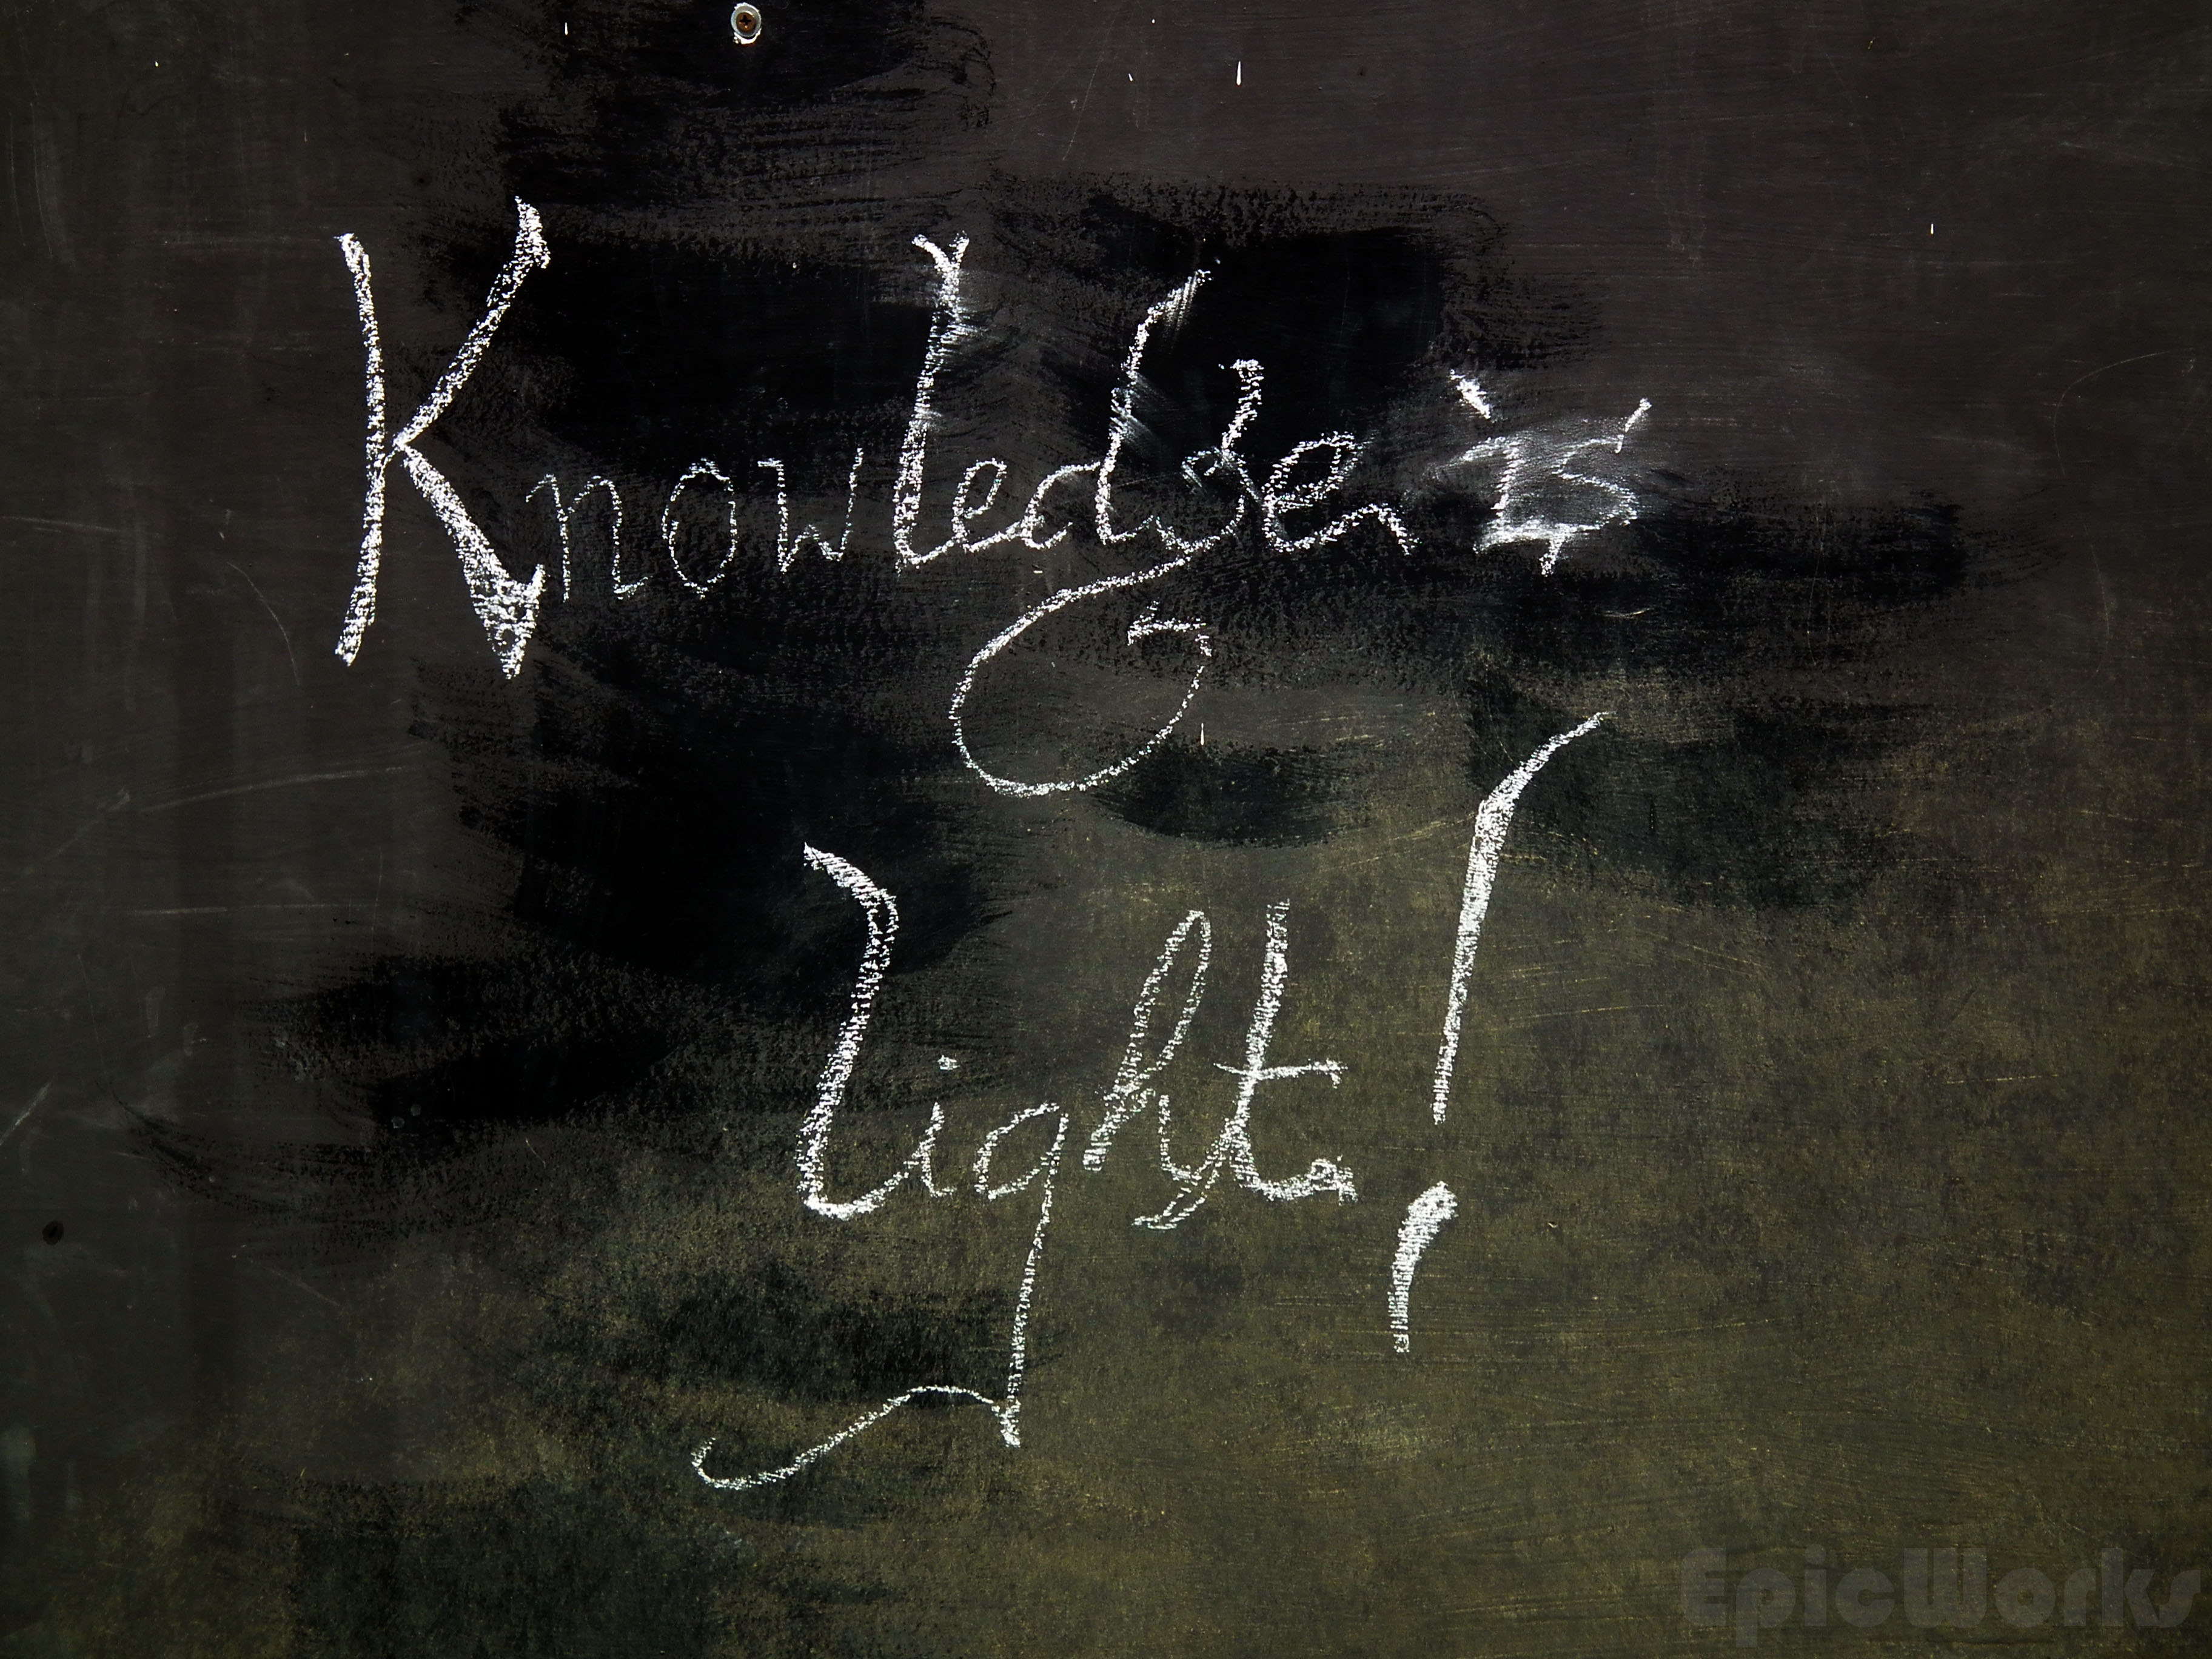 Knowledge is
light!
EpicWorks